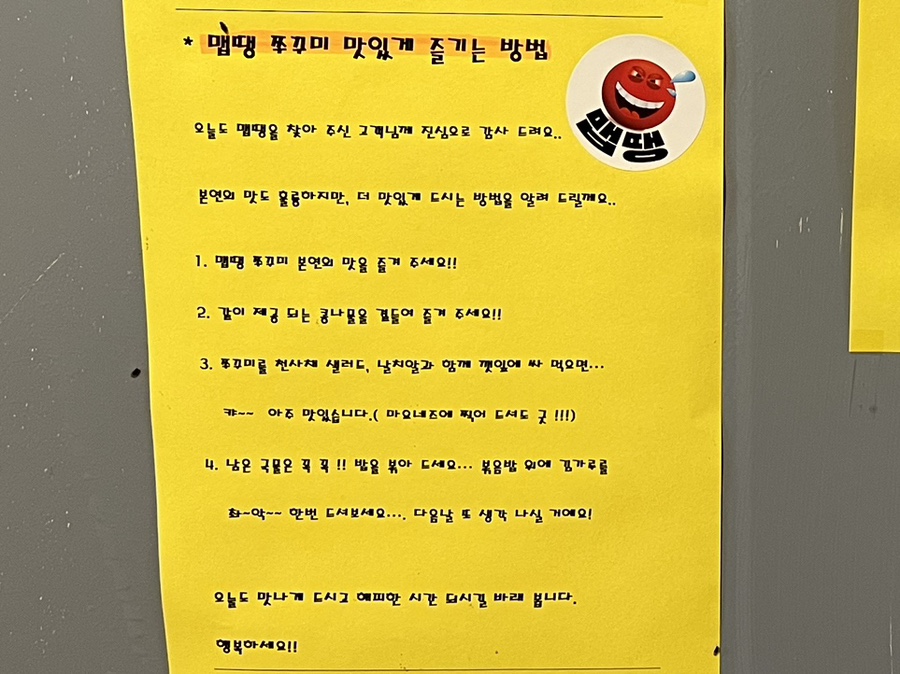 * 맵땡 쭈꾸미 맛있게 즐기는 방법
맵땡
오늘도 맵땡을 찾아 주신 고객님께 진심으로 감사 드려요..
본연의 맛도 훌륭하지만, 더 맛있게 드시는 방법을 알려 드릴께요..
1. 맵땡 쭈꾸미 본연의 맛을 즐겨 주세요!!
2. 같이 제공 되는 콩나물을 곁들여 즐겨 주세요!!
3. 쭈꾸미를 천사채 샐러드, 날치알과 함께 깻잎에 싸 먹으면…
캬~~ 아주 맛있습니다.( 마요네즈에 찍어 드셔도 굿 !!!)
4. 남은 국물은 꼭 꼭 !! 밥을 볶아 드세요… 볶음밥 위에 김가루를
촤~악~~ 한번 드셔보세요…. 다음날 또 생각 나실 거에요!
오늘도 맛나게 드시고 해피한 시간 되시길 바래 봅니다.
행복하세요!!